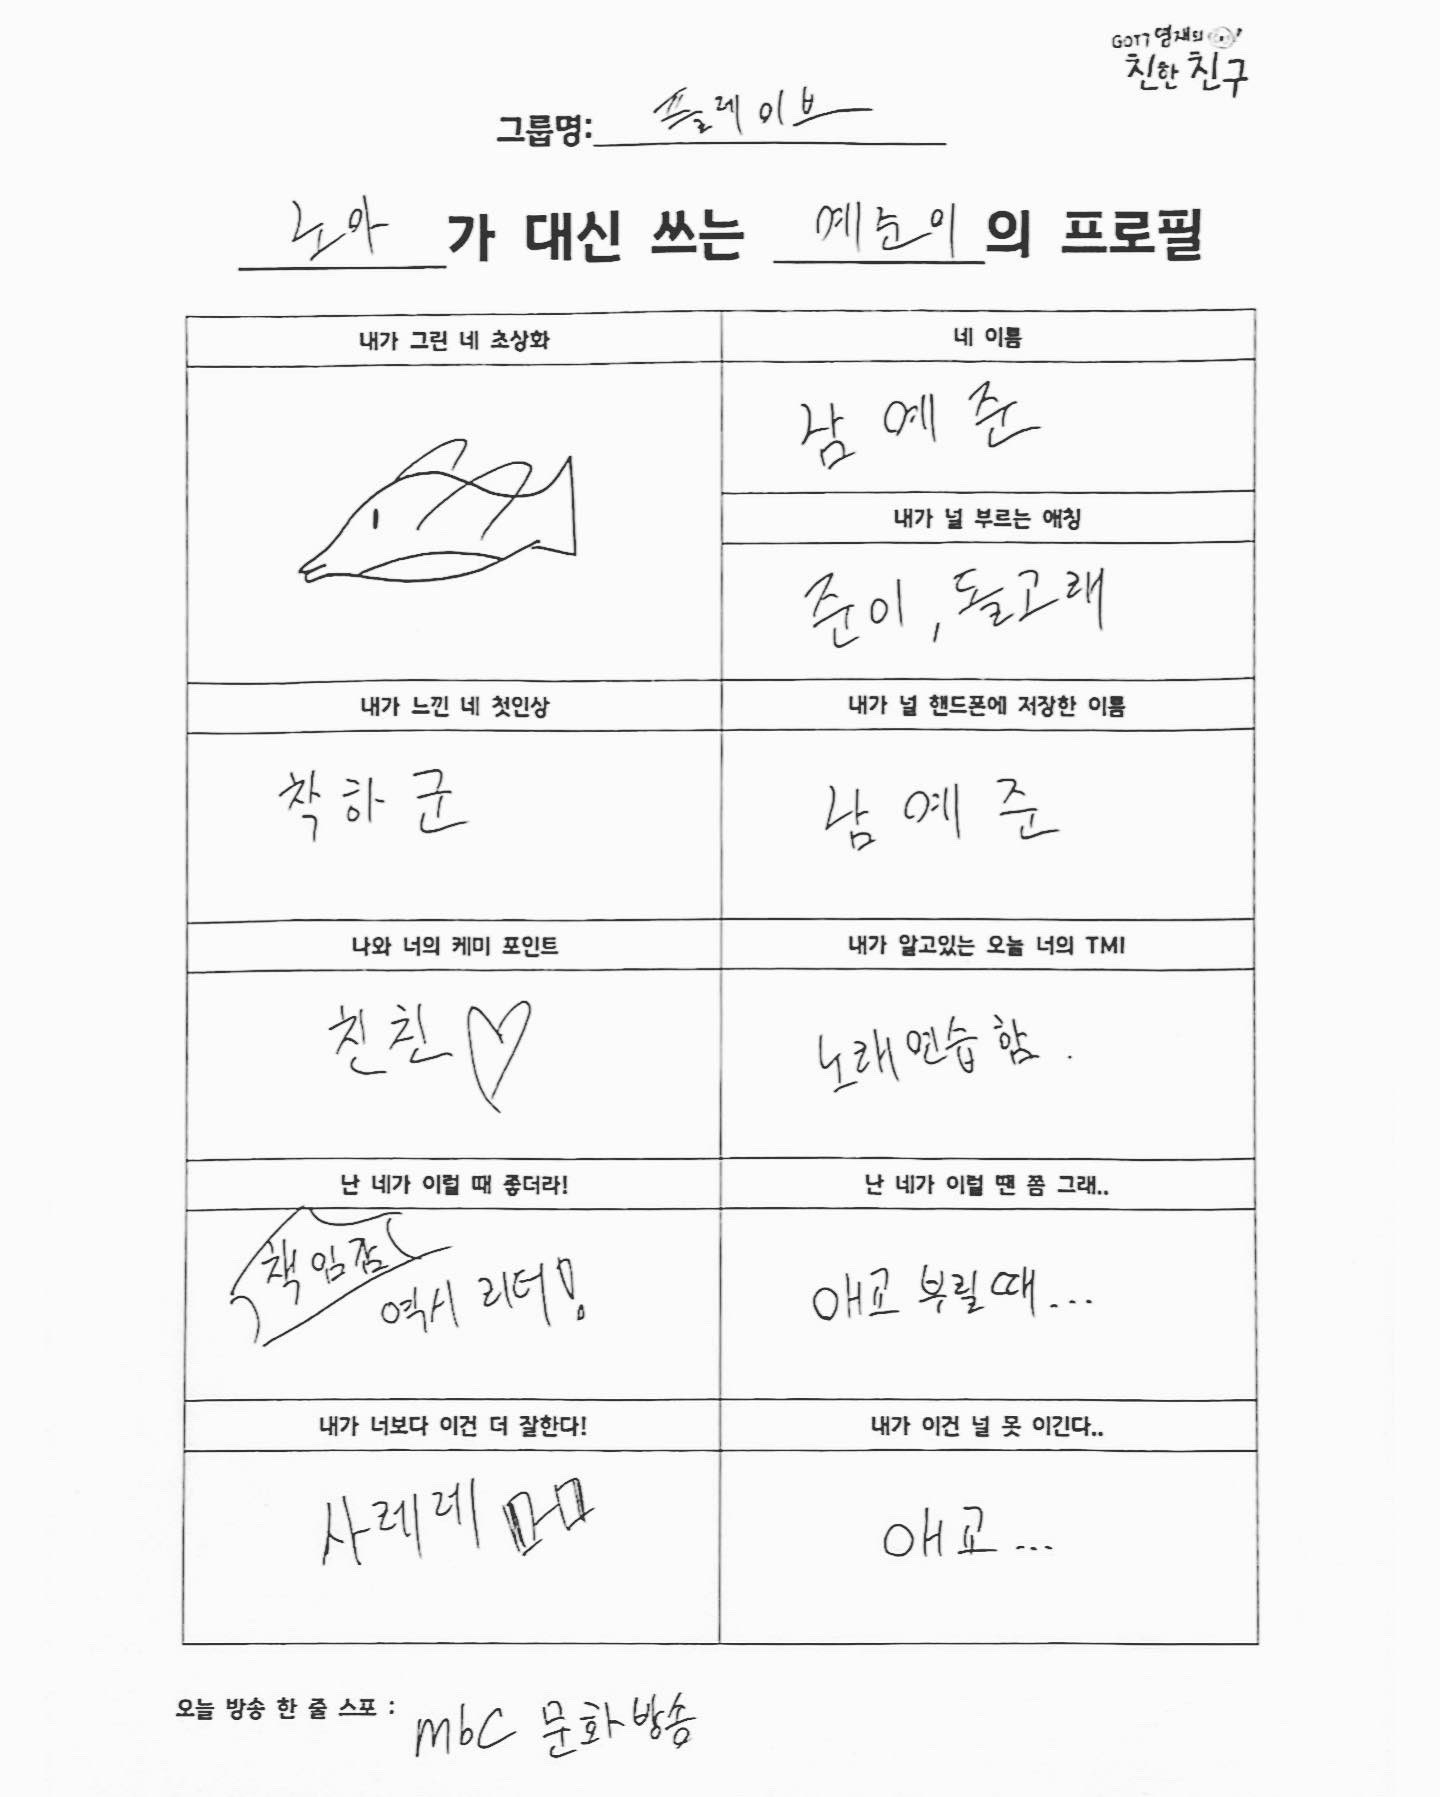 GOT7 영재의
친한 친구
그룹명: 플레이브
노아가 대신 쓰는 예준이의 프로필
내가 그린 네 초상화
네 이름
남예준
내가 널 부르는 애칭
준이, 돌고래
내가 느낀 네 첫인상
착하군
내가 널 핸드폰에 저장한 이름
남예준
나와 너의 케미 포인트
친친♡
내가 알고있는 오늘 너의 TMI
노래연습함.
난 네가 이럴 때 좋더라!
책임감
역시 리더!
난 네가 이럴 땐 쫌 그래..
애교 부릴때...
내가 너보다 이건 더 잘한다!
사레레
내가 이건 널 못 이긴다..
애교...
오늘 방송 한 줄 스포 : mbc 문화방송